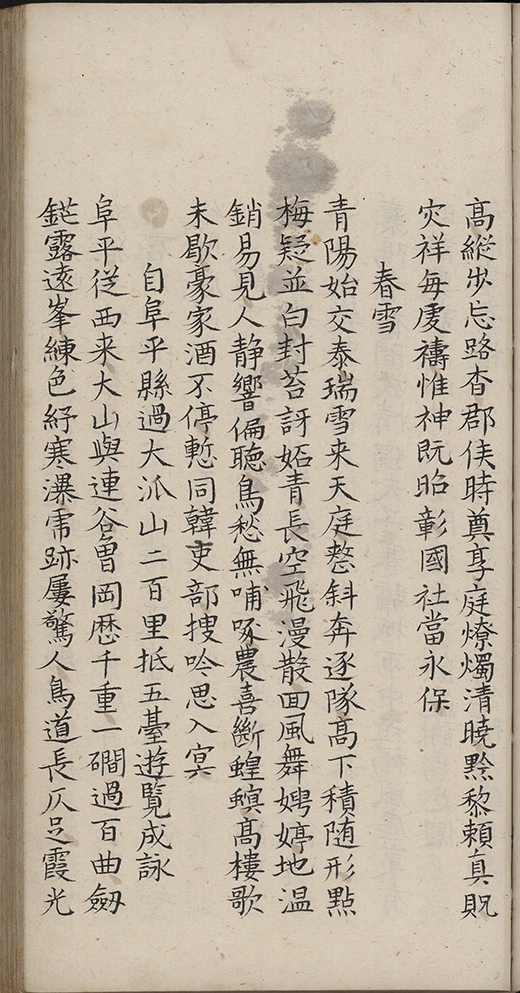 高縱步忘路杳郡侯時奠享庭燎燭清曉黔黎賴真貺
灾祥每虔禱惟神既昭彰國社當永保
春雪
青陽始交泰瑞雪来天庭整斜奔逐隊高下積随形點
梅疑並白封苔訝妬青長空飛漫散回風舞娉婷地温
銷易見人静響偏聴鳥愁無哺啄農喜斷蝗螟高樓歌
未歇豪家酒不停慙同韓吏部搜吟思入㝠
自阜平縣過大泒山二百里抵五臺遊覽成詠
阜平從西来大山與連谷曾岡厯千重一磵過百曲劔
鋩露遠峯練色紓寒瀑虎跡屢驚人鳥道長仄足霞光